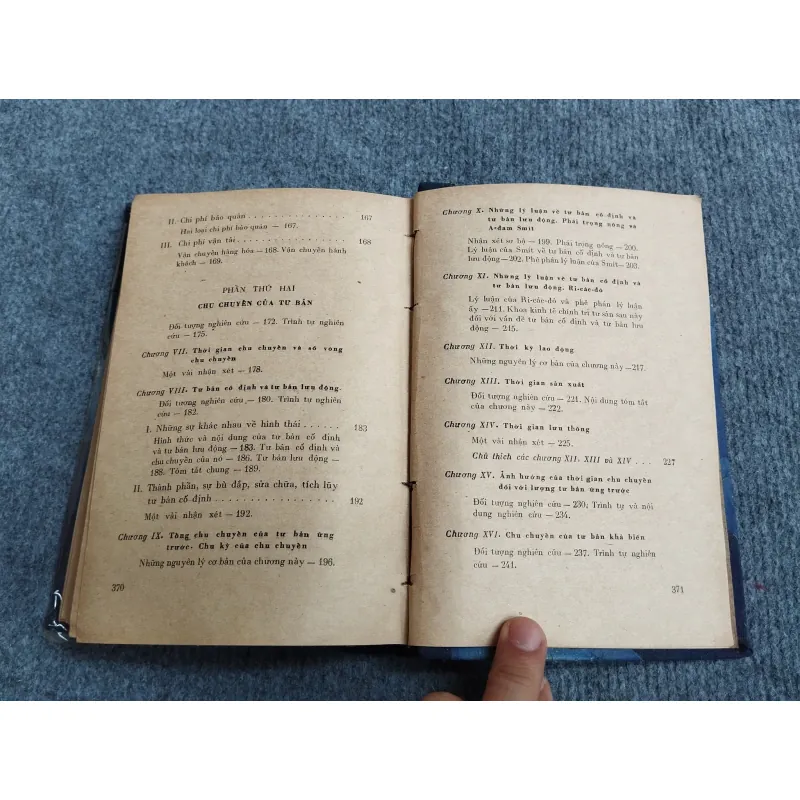 II. Chi phí bảo quản . . . . . . . . . . . . . . . 167
Hai loại chi phí bảo quản — 167.
III. Chi phí vận tải . . . . . . . . . . . . . . . . 168
Vận chuyển hàng hóa — 168. Vận chuyển hành
khách — 169.
PHẦN THỨ HAI
CHU CHUYỂN CỦA TƯ BẢN
Đối tượng nghiên cứu — 172. Trình tự nghiên
cứu — 175.
Chương VII. Thời gian chu chuyển và số vòng
chu chuyển
Một vài nhận xét — 178.
Chương VIII. Tư bản cố định và tư bản lưu động.
Đối tượng nghiên cứu — 180. Trình tự nghiên
cứu — 182.
I. Những sự khác nhau về hình thái . . . . . . 183
Hình thức và nội dung của tư bản cố định
và tư bản lưu động — 183. Tư bản cố định và
chu chuyển của nó — 186. Tư bản lưu động —
188. Tóm tắt chung — 189.
II. Thành phần, sự bù đắp, sửa chữa, tích lũy
tư bản cố định . . . . . . . . . . . . . . . . . 192
Một vài nhận xét — 192.
Chương IX. Tổng chu chuyển của tư bản ứng
trước. Chu kỳ của chu chuyển
Những nguyên lý cơ bản của chương này — 196.
370
Chương X. Những lý luận về tư bản cố định và
tư bản lưu động. Phái trọng nông và
A-đam Smit
Nhận xét sơ bộ — 199. Phái trọng nông — 200.
Lý luận của Smit về tư bản cố định và tư bản
lưu động — 202. Phê phán lý luận của Smit — 203.
Chương XI. Những lý luận về tư bản cố định và
tư bản lưu động. Ri-các-đô
Lý luận của Ri-các-đô và phê phán lý luận
ấy — 211. Khoa kinh tế chính trị tư sản sau này
đối với vấn đề tư bản cố định và tư bản lưu
động — 215.
Chương XII. Thời kỳ lao động
Những nguyên lý cơ bản của chương này — 217.
Chương XIII. Thời gian sản xuất
Đối tượng nghiên cứu — 221. Nội dung tóm tắt
của chương này — 222.
Chương XIV. Thời gian lưu thông
Một vài nhận xét — 225.
Chú thích các chương XII, XIII và XIV . . . 227
Chương XV. Ảnh hưởng của thời gian chu chuyển
đối với lượng tư bản ứng trước
Đối tượng nghiên cứu — 230. Trình tự và nội
dung nghiên cứu — 234.
Chương XVI. Chu chuyển của tư bản khả biến
Đối tượng nghiên cứu — 237. Trình tự nghiên
cứu — 241.
371